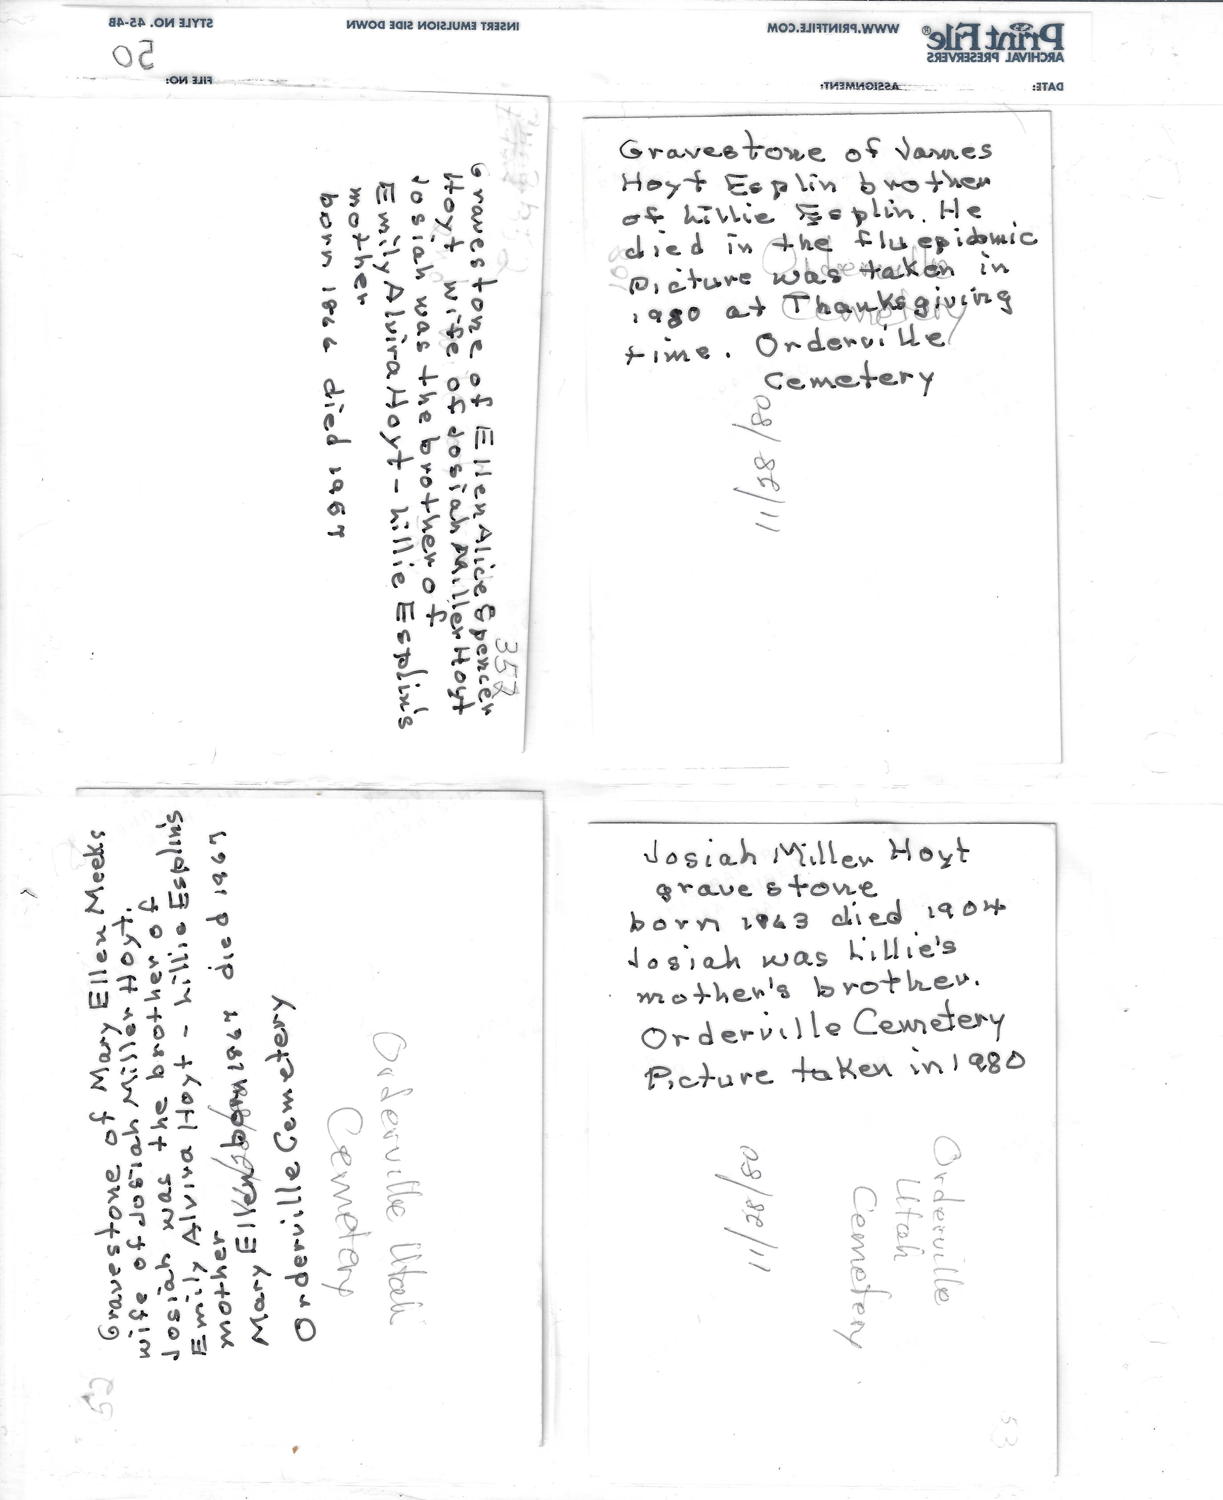 STYLE NO. 45-4B
INSERT EMULSION SIDE DOWN
WWW.PRINTFILE.COM
Print File®
ARCHIVAL PRESERVERS
50
FILE NO:
ASSIGNMENT:
DATE:
Gravestone of Ellen Alice Spencer
Hoyt wife of Josiah Miller Hoyt
Josiah was the brother of
Emily Alvira Hoyt - Lillie Esplin's
mother
born 1866 died 1967
358
Gravestone of James
Hoyt Esplin brother
of Lillie Esplin. He
died in the flu epidemic
Picture was taken in
1980 at Thanksgiving
time. Orderville
Cemetery
Orderville
Cemetery
11/28/80
Gravestone of Mary Ellen Meeks
wife of Josiah Miller Hoyt.
Josiah was the brother of
Emily Alvira Hoyt - Lillie Esplin's
mother
Mary Ellen born 1867 died 1967
Orderville Cemetery
Orderville Utah
Cemetery
52
Josiah Miller Hoyt
gravestone
born 1863 died 1904
Josiah was Lillie's
mother's brother.
Orderville Cemetery
Picture taken in 1980
11/28/80
Orderville
Utah
Cemetery
53